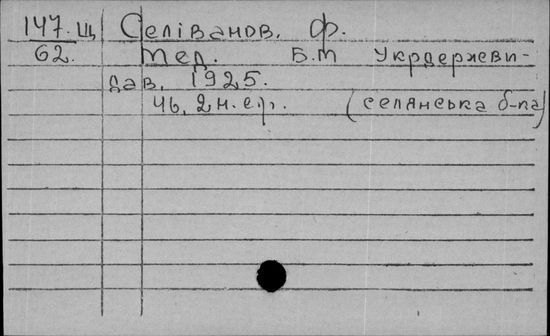 147.Щ Селіванов, Ф.
62. Мед. Б.М Укрдержеви-
дав, 1925.
46, 2 н.е.р. (селянська б-ка)